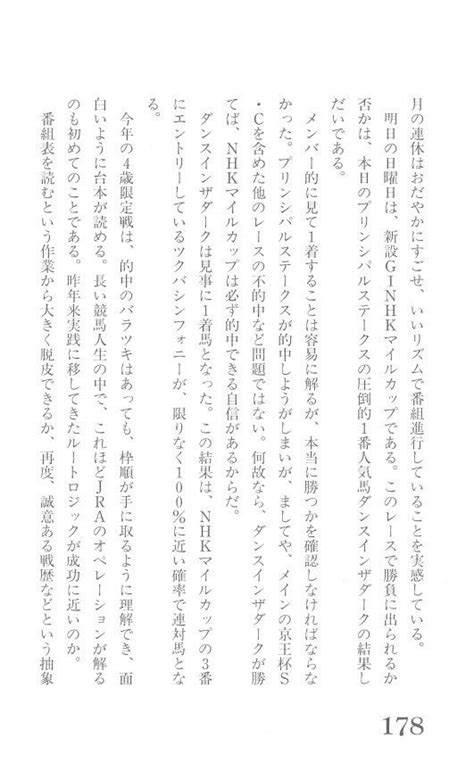 月の連休はおだやかにすごせ、いいリズムで番組進行していることを実感している。
明日の日曜日は、新設GINHKマイルカップである。このレースで勝負に出られるか
否かは、本日のプリンシパルステークスの圧倒的1番人気馬ダンスインザダークの結果し
だいである。
メンバー的に見て1着することは容易に解るが、本当に勝つかを確認しなければならな
かった。プリンシパルステークスが的中しようがしまいが、ましてや、メインの京王杯S
・Cを含めた他のレースの不的中など問題ではない。何故なら、ダンスインザダークが勝
てば、NHKマイルカップは必ず的中できる自信があるからだ。
ダンスインザダークは見事に1着馬となった。この結果は、NHKマイルカップの3番
にエントリーしているツクバシンフォニーが、限りなく100%に近い確率で連対馬とな
る。
今年の4歳限定戦は、的中のバラツキはあっても、枠順が手に取るように理解でき、面
白いように台本が読める。長い競馬人生の中で、これほどJRAのオペレーションが解る
のも初めてのことである。昨年来実践に移してきたルートロジックが成功に近いのか。
番組表を読むという作業から大きく脱皮できるか、再度、誠意ある戦歴などという抽象
178